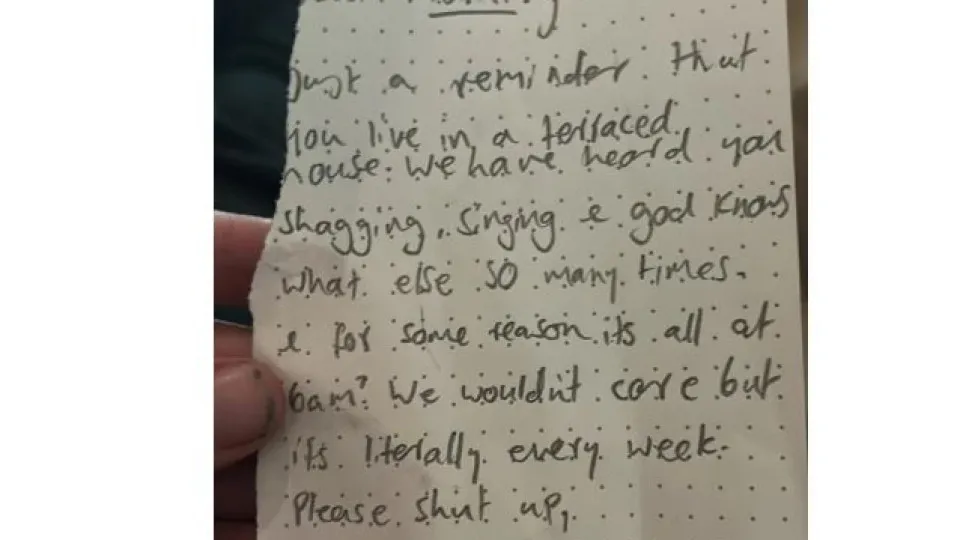 Just a reminder that
you live in a terraced
house. We have heard you
shagging, singing & god knows
what else so many times.
& for some reason its all at
6am? We wouldn't care but
its literally every week.
Please shut up,